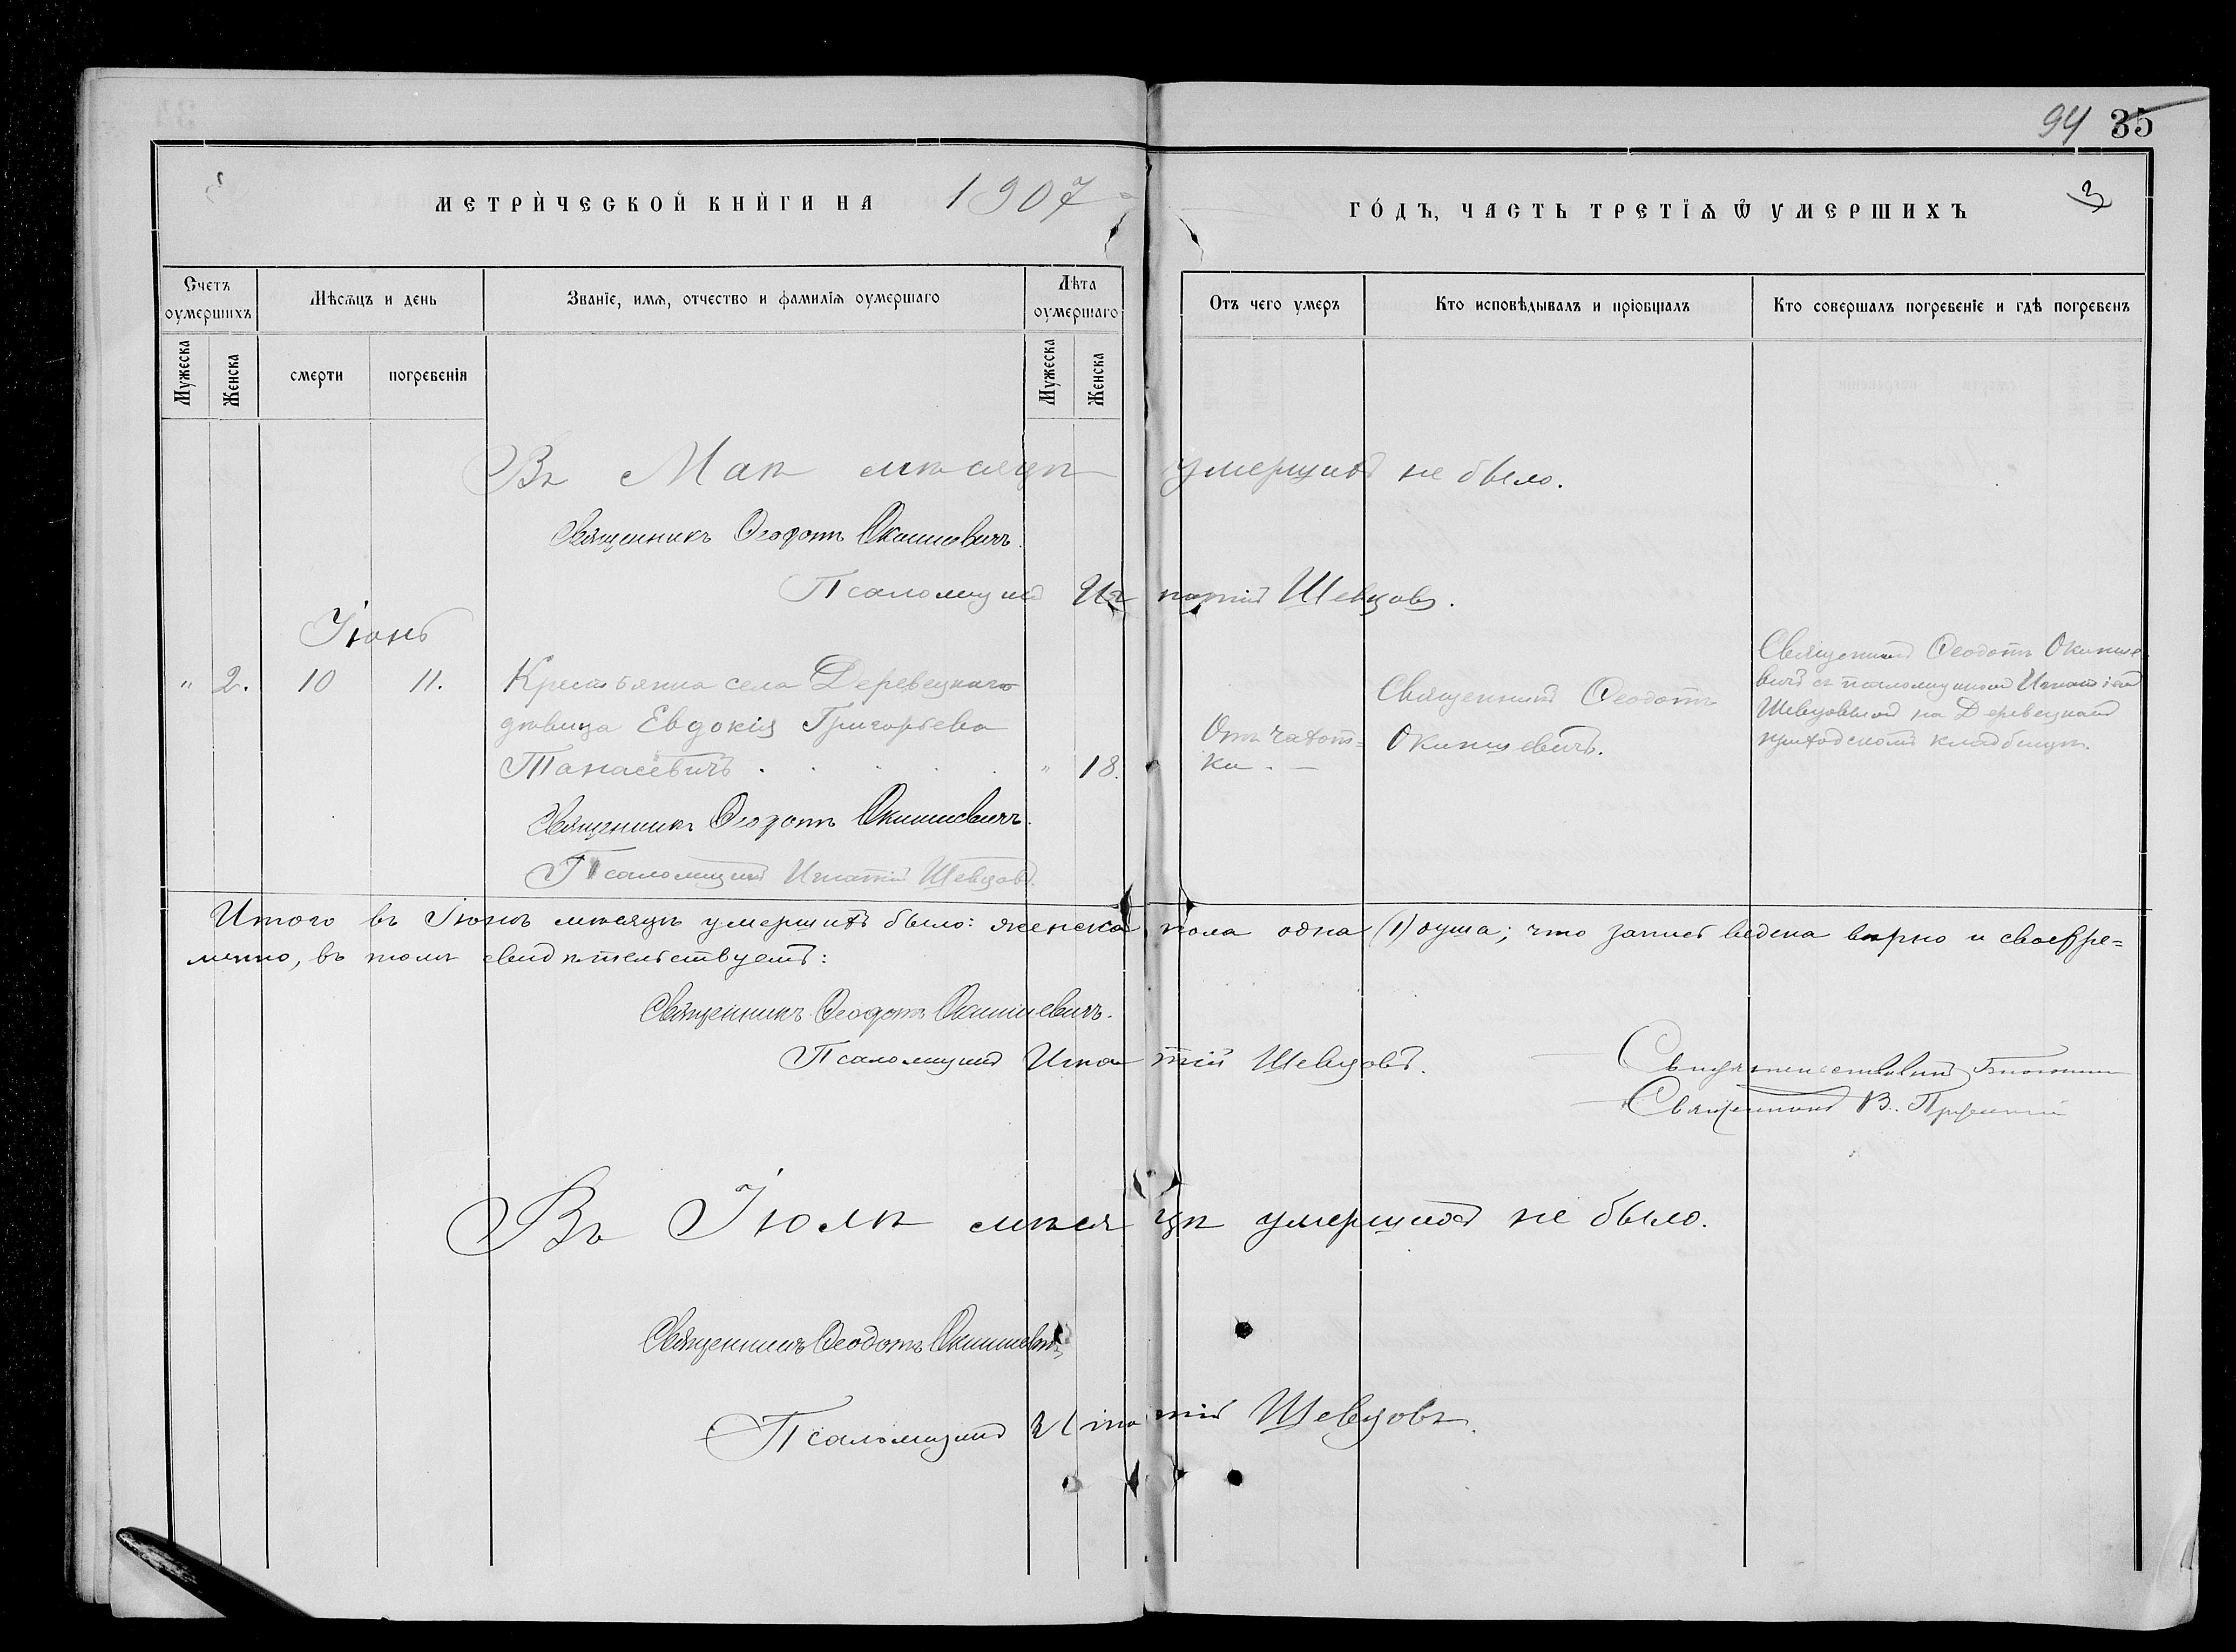 94 35
МЕТРИЧЕСКОЙ КНИГИ НА 1907 ГОДЪ, ЧАСТЬ ТРЕТІЯ Ѿ УМЕРШИХЪ 3
Счетъ оумершихъ
Мѣсяцъ и день
Званіе, имя, отчество и фамилія оумершаго
Лѣта оумершаго
Отъ чего умеръ
Кто исповѣдывалъ и пріобщалъ
Кто совершалъ погребеніе и гдѣ погребенъ
Мужеска
Женска
смерти
погребенія
Мужеска
Женска
Въ Маѣ мѣсяцѣ умершихъ не было.
Священникъ Ѳеодотъ Окиншевичъ.
Псаломщикъ Игнатій Шевцовъ.
Іюнь
" 2. 10 11.
Крестьянка села Деревецкаго
дѣвица Евдокія Григорьева
Танасевичъ . . . . . " 18.
Отъ чахот=
ки. —
Священникъ Ѳеодотъ
Окиншевичъ.
Священникъ Ѳеодотъ Окинше
вичъ съ псаломщикомъ Игнатіемъ
Шевцовымъ на Деревецкомъ
приходскомъ кладбищѣ.
Священникъ Ѳеодотъ Окиншевичъ.
Псаломщикъ Игнатій Шевцовъ.
Итого въ Іюнѣ мѣсяцѣ умершихъ было: женска пола одна (1) душа; что запись ведена вѣрно и своевре=
менно, въ томъ свидѣтельствуемъ:
Священникъ Ѳеодотъ Окиншевичъ.
Псаломщикъ Игнатій Шевцовъ.
Свидѣтельствовалъ
Священникъ В.
Въ Іюлѣ мѣсяцѣ умершихъ не было.
Священникъ Ѳеодотъ Окиншевичъ
Псаломщикъ Игнатій Шевцовъ.